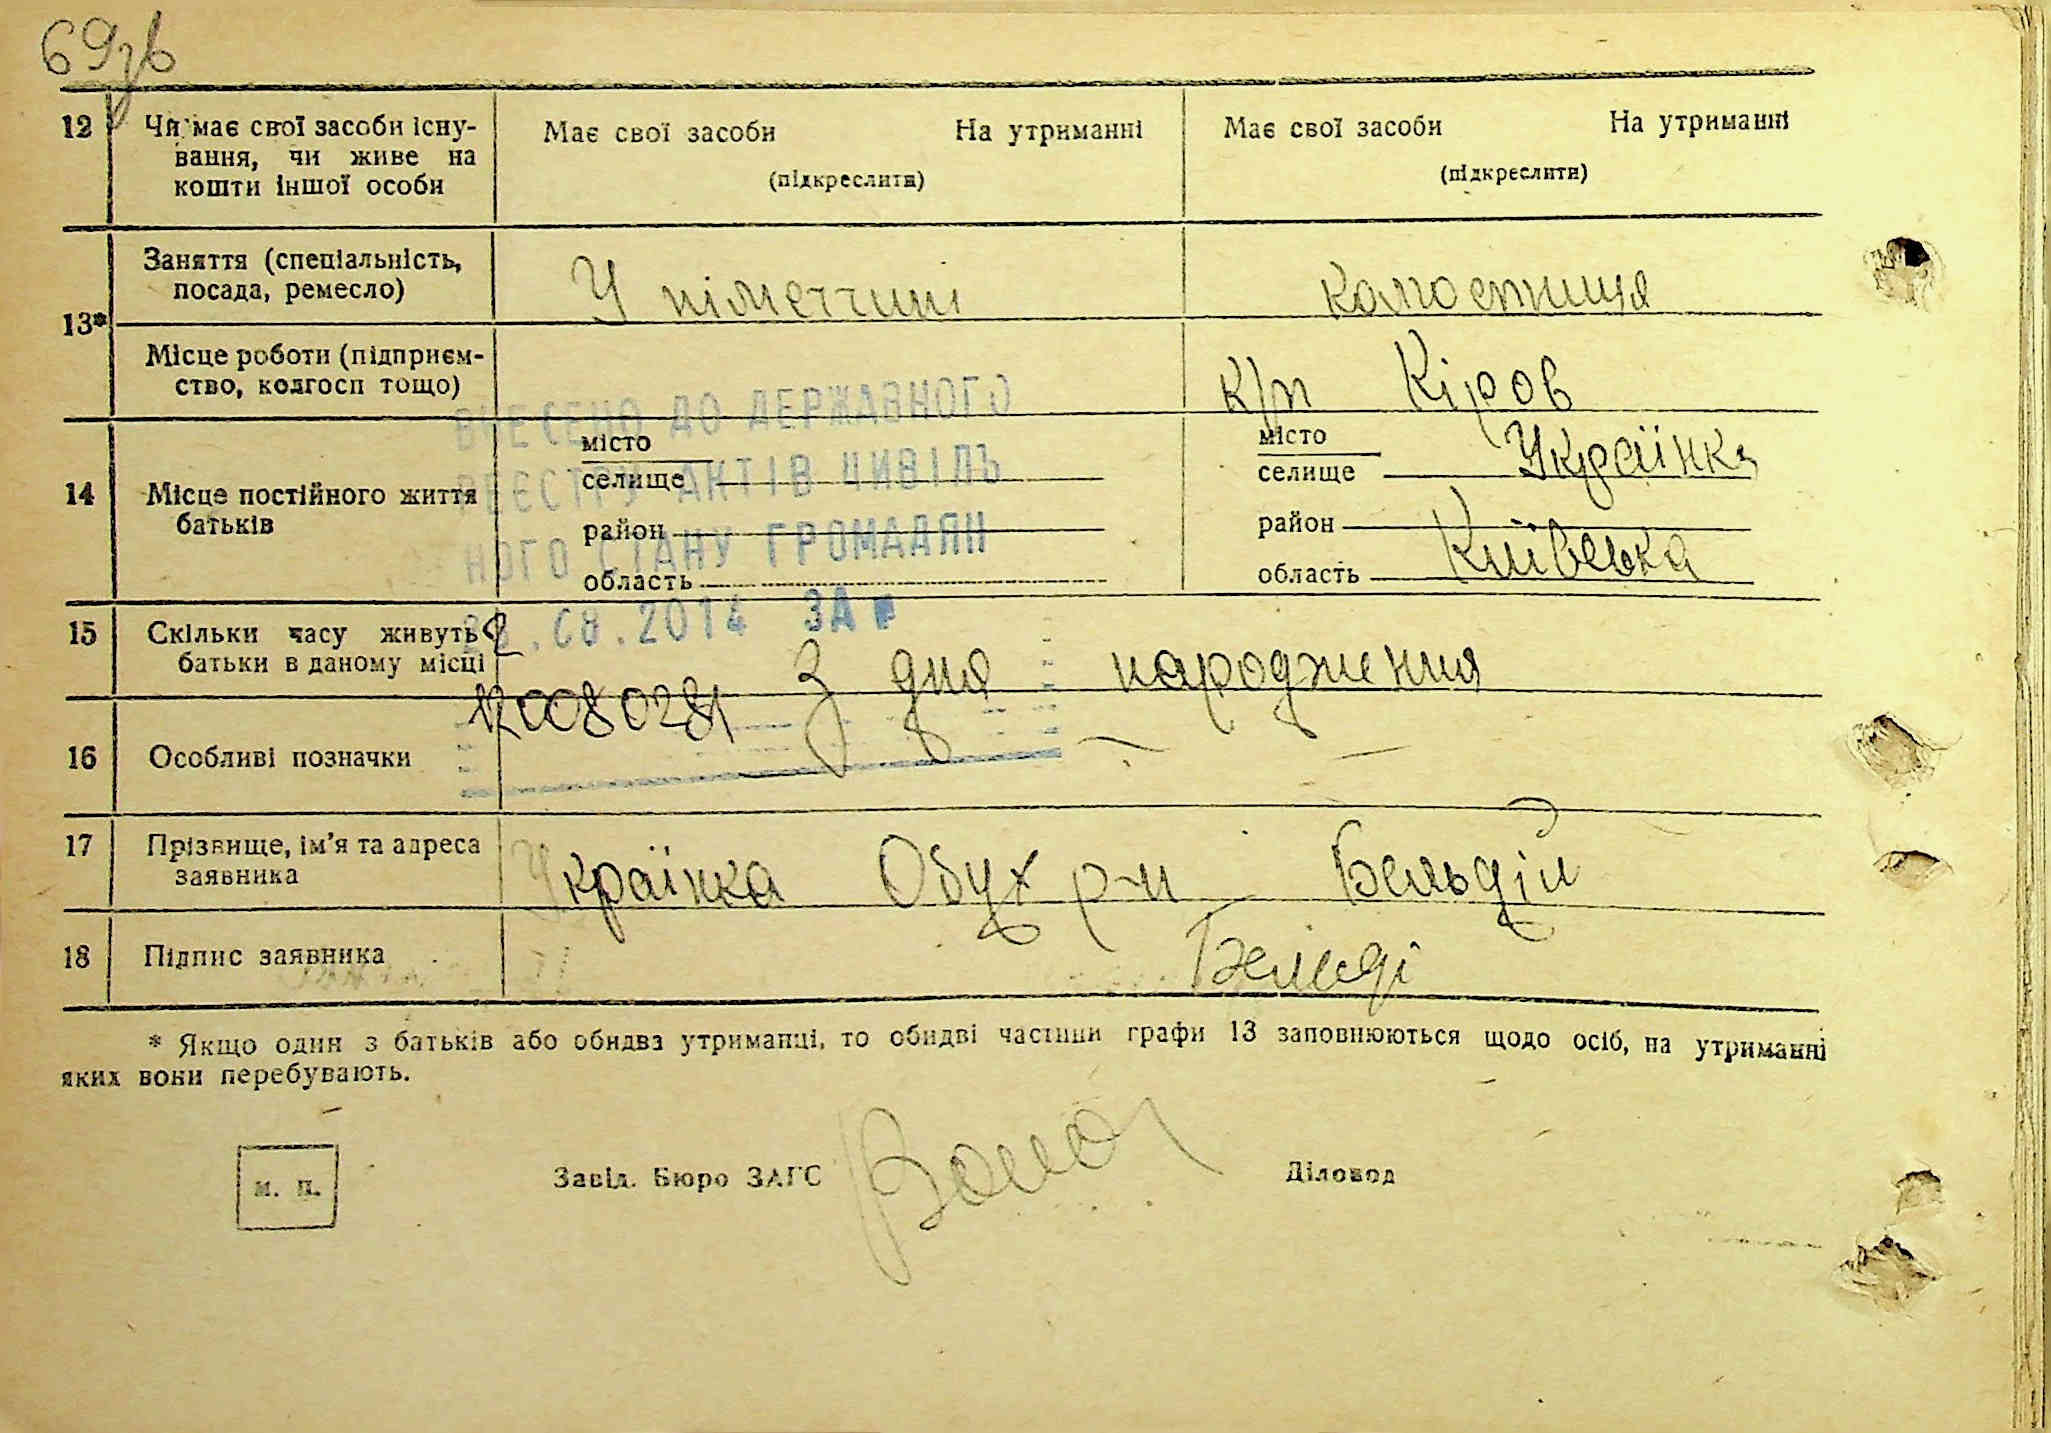 69зв
12 Чи має свої засоби існу- Має свої засоби На утриманні Має свої засоби На утриманні
вання, чи живе на (підкреслити) (підкреслити)
кошти іншої особи
13* Заняття (спеціальність, У німеччині колгоспниця
посада, ремесло)
Місце роботи (підприєм- к/г Кіров
ство, колгосп тощо)
ВНЕСЕНО ДО ДЕРЖАВНОГО
РЕЄСТРУ АКТІВ ЦИВІЛЬ
НОГО СТАНУ ГРОМАДЯН
.08.2014 ЗА №
12 0080281
14 Місце постійного життя місто місто Українка
батьків селище селище
район район
область область Київська
15 Скільки часу живуть З дня народження
батьки в даному місці
16 Особливі позначки — —
17 Прізвище, ім'я та адреса Українка Обух р-н Бельдій
заявника
18 Підпис заявника Бельді
* Якщо один з батьків або обидва утриманці, то обидві частини графи 13 заповнюються щодо осіб, на утриманні
яких вони перебувають.
м. п. Завід. Бюро ЗАГС Діловод